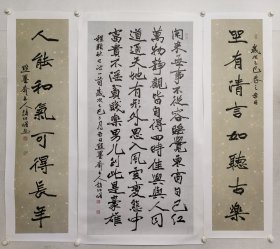 坐有清言如聽古樂
閑來無事不從容睡覺東窗日已紅
萬物靜觀皆自得四時佳興與人同
道通天地有形外思入風雲變態中
富貴不淫貧賤樂男兒到此是豪雄
人能和氣可得長年